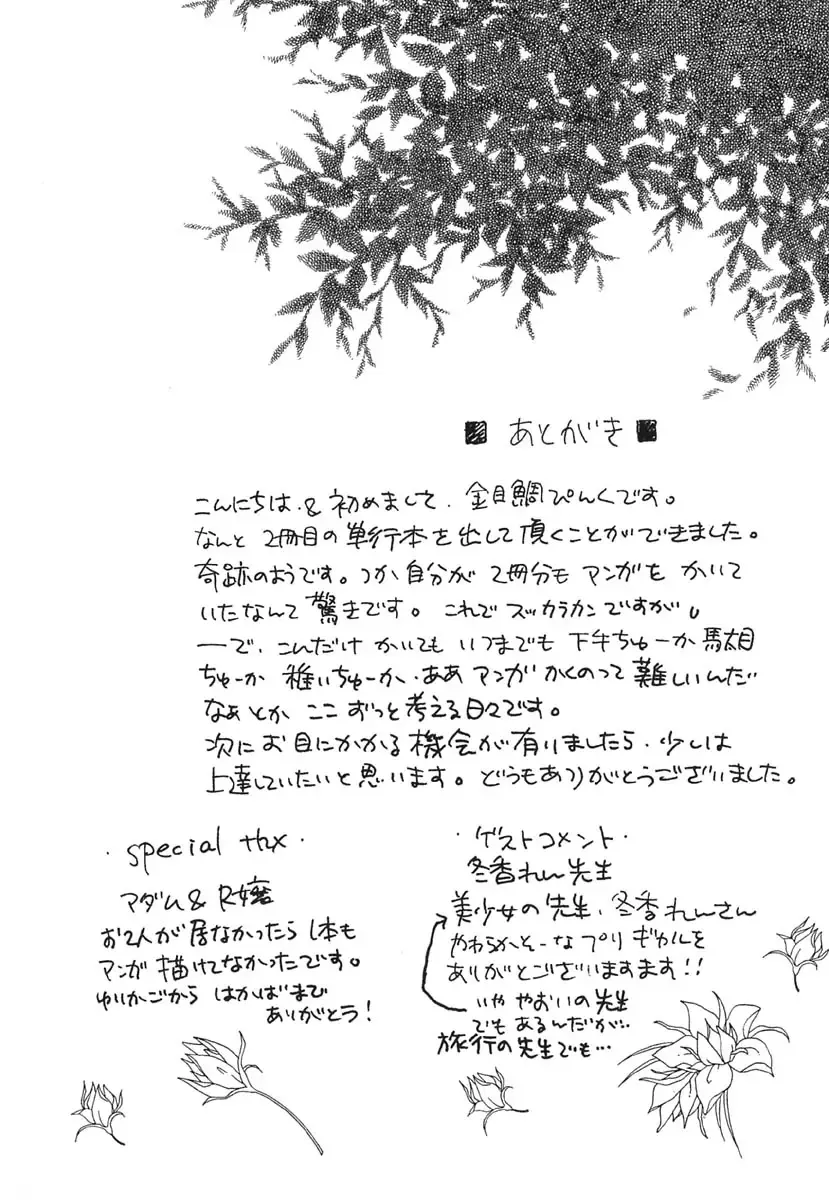 ■ あとがき ■
こんにちは、& 初めまして、金目鯛ぴんくです。
なんと 2冊目の単行本を出して頂くことができました。
奇跡のようです。つか自分が 2冊分も マンガを かいて
いたなんて 驚きです。これで スッカラカン ですが。
一で、こんだけ かいても いつまでも 下手ちゅーか 駄目
ちゅーか 稚いちゅーか、ああ マンガ かくのって 難しいんだ
なぁとか ここ ずっと考える日々です。
次に お目にかかる 機会が 有りましたら、少しは
上達していたいと 思います。どうもありがとうございました。
・special thx・
マダム & R嬢
お2人が 居なかったら 1本も
マンガ 描けてなかったです。
ゆりかごから はかばまで
ありがとう!
・ゲストコメント・
冬香れん先生
美少女の先生、冬香れんさん
やわらかそーな プリ ギャルを
ありがとございますます!!
いや やおいの先生
でも あるんだが…
旅行の先生でも…